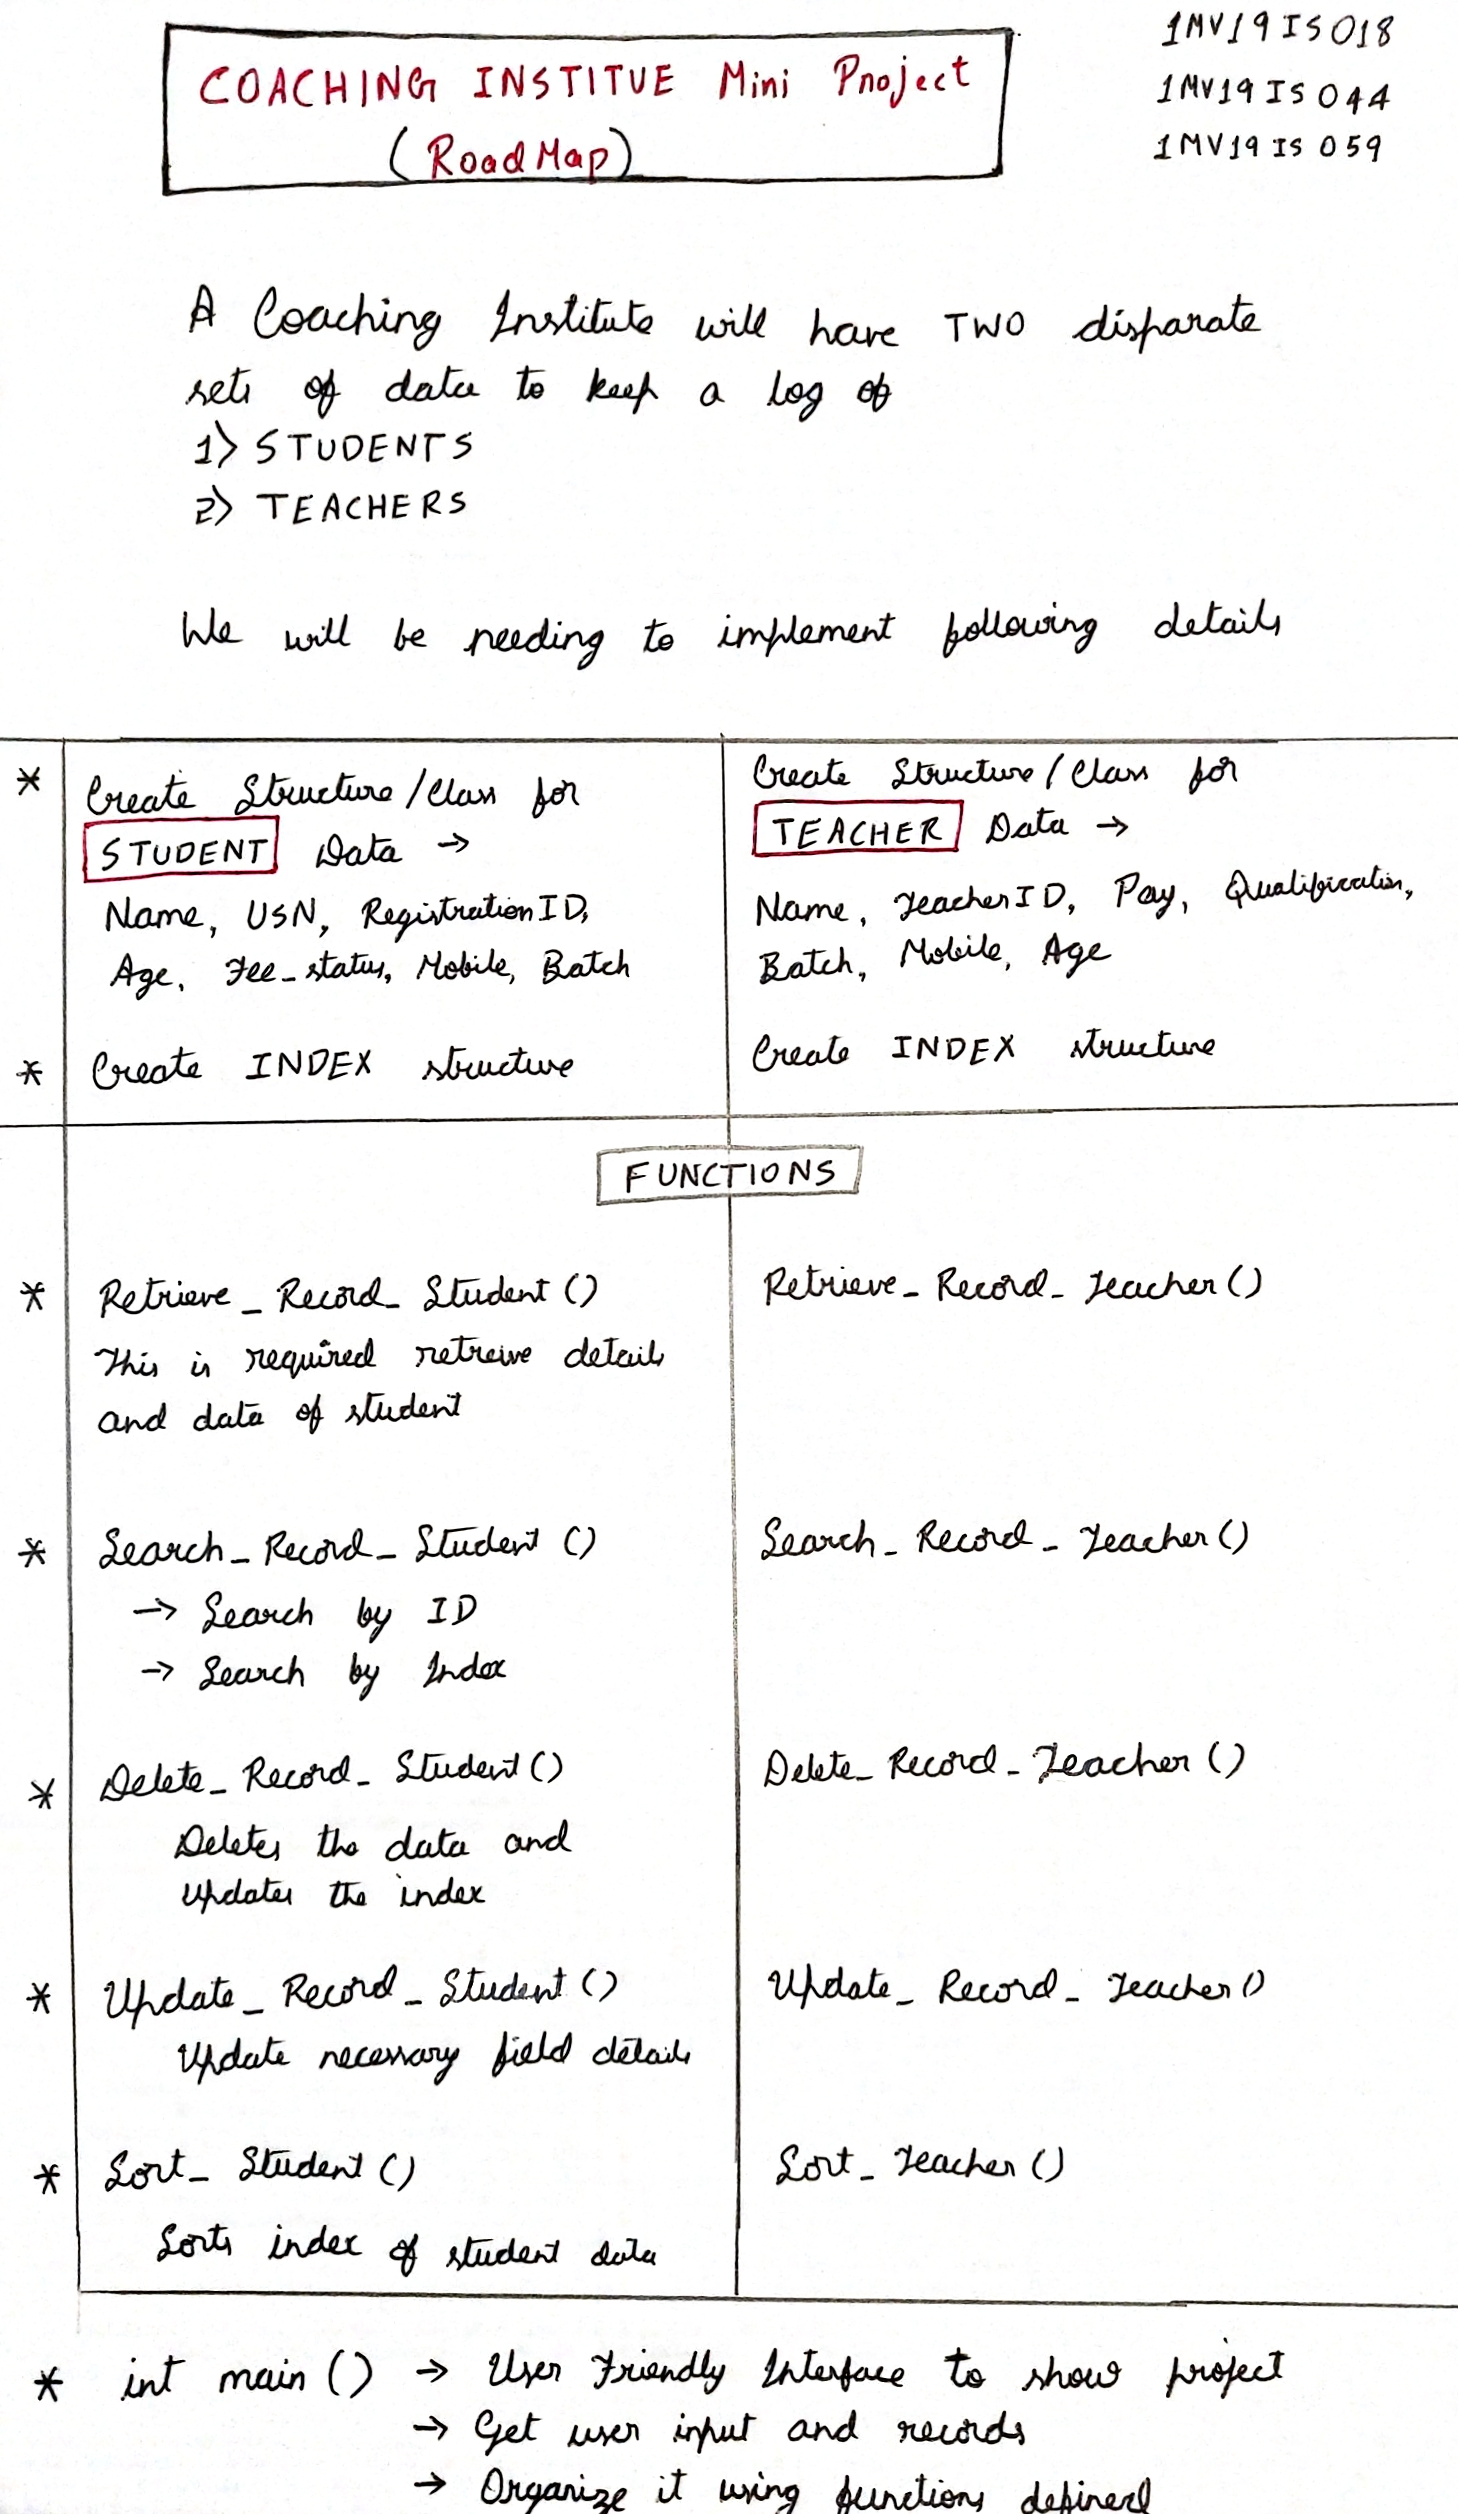 COACHING INSTITUE Mini Project
(RoadMap)
1MV19IS018
1MV19IS044
1MV19IS059
A Coaching Institute will have TWO disparate
sets of data to keep a log of
1) STUDENTS
2) TEACHERS
We will be needing to implement following details
* Create Structure/Class for
STUDENT Data →
Name, USN, RegistrationID,
Age, Fee_status, Mobile, Batch
* Create INDEX structure
Create Structure/Class for
TEACHER Data →
Name, TeacherID, Pay, Qualification,
Batch, Mobile, Age
Create INDEX structure
FUNCTIONS
* Retrieve_Record_Student()
This is required retreive details
and data of student
Retrieve_Record_Teacher()
* Search_Record_Student()
→ Search by ID
→ Search by Index
Search_Record_Teacher()
* Delete_Record_Student()
Deletes the data and
Updates the index
Delete_Record_Teacher()
* Update_Record_Student()
Update necessary field details
Update_Record_Teacher()
* Sort_Student()
Sorts index of student data
Sort_Teacher()
* int main() → User Friendly Interface to show project
→ Get user input and records
→ Organize it using functions defined